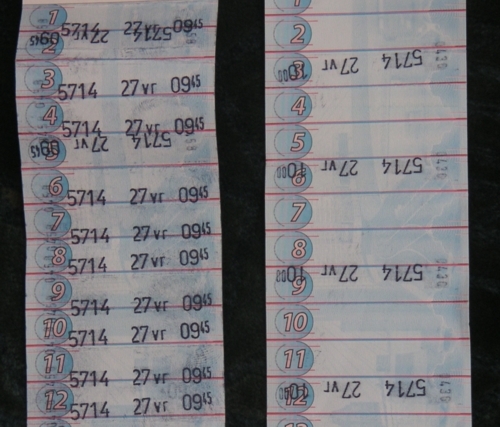 1
5714 27 vr 09 45
2
3
5714 27 vr 09 45
4
5714 27 vr 09 45
5
5714 27 vr 09 45
6
5714 27 vr 09 45
7
5714 27 vr 09 45
8
5714 27 vr 09 45
9
5714 27 vr 09 45
10
5714 27 vr 09 45
11
5714 27 vr 09 45
12
5714 27 vr 09 45
1
2
3
5714 27 vr 10 00
4
5
6
5714 27 vr 10 00
7
8
9
5714 27 vr 10 00
10
11
12
5714 27 vr 10